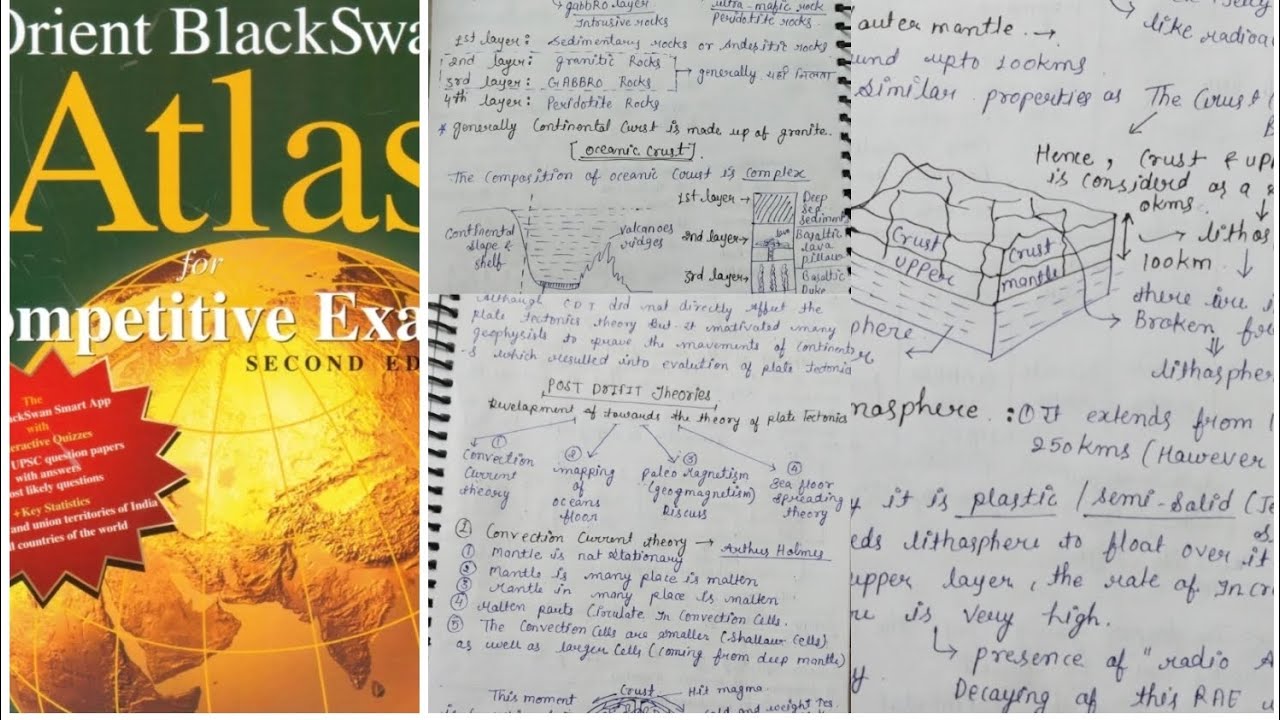 Orient BlackSwa
Atlas
for
ompetitive Exa
SECOND ED
The
ckSwan Smart App
with
eractive Quizzes
UPSC question papers
with answers
ost likely questions
+Key Statistics
and union territories of India
countries of the world
gabbRO layer
Intrusive rocks
ultra-mafic rock
Peridotite rocks
1st layer: Sedimentary rocks or Andesitic rocks
2nd layer: granitic Rocks
3rd layer: GABBRO Rocks
generally यही मिलता
4th layer: Peridotite Rocks
* generally Continental Curst is made up of granite.
[Oceanic Crust]
The Composition of oceanic Coust is Complex
Continental slope & shelf
valcanoes ridges
1st layer →
Deep sea sediments
2nd layer →
Basaltic lava pillow
3rd layer →
Basaltic Duke
Although CDT did nat directly Affect the
plate tectonics theory But it mativated many
geophysists to prave the mavements of Continent
s which resulted into evolution of plate tectonic
POST DRIFIT Theories
Develapment of towards the theory of plate Tectonics
① Canvection Current theory
② mapping of oceans floor
③ paleo magnetism (geogmagnetism) Discuss
④ Sea floor spreading theory
① Canvection Current theory → Arthus Holmes
① Mantle is nat stationary
② Mantle is many place is malten
③ Mantle in many place Is malten
④ Malten parts Circulate In Canvection Cells.
⑤ The Canvection Cells are smaller (Shallaw Cells)
as well as larger Cells (Coming from deep mantle)
This moment
Crust
Hit magma
outer mantle →
und upto 100kms
Similar properties as The Crust
like radioa
Hence, Crust & upp
is considerd as a
0kms
Crust
upper
Crust
mantle
100km
lithos
there are
Broken
lithospher
phere
nasphere : ① It extends from
250kms (Hawever
it is plastic / Semi-Salid
eds lithasphere to float over it
upper layer, the rate of Incr
re is very high.
presence of "radio A
Decaying of this RAE